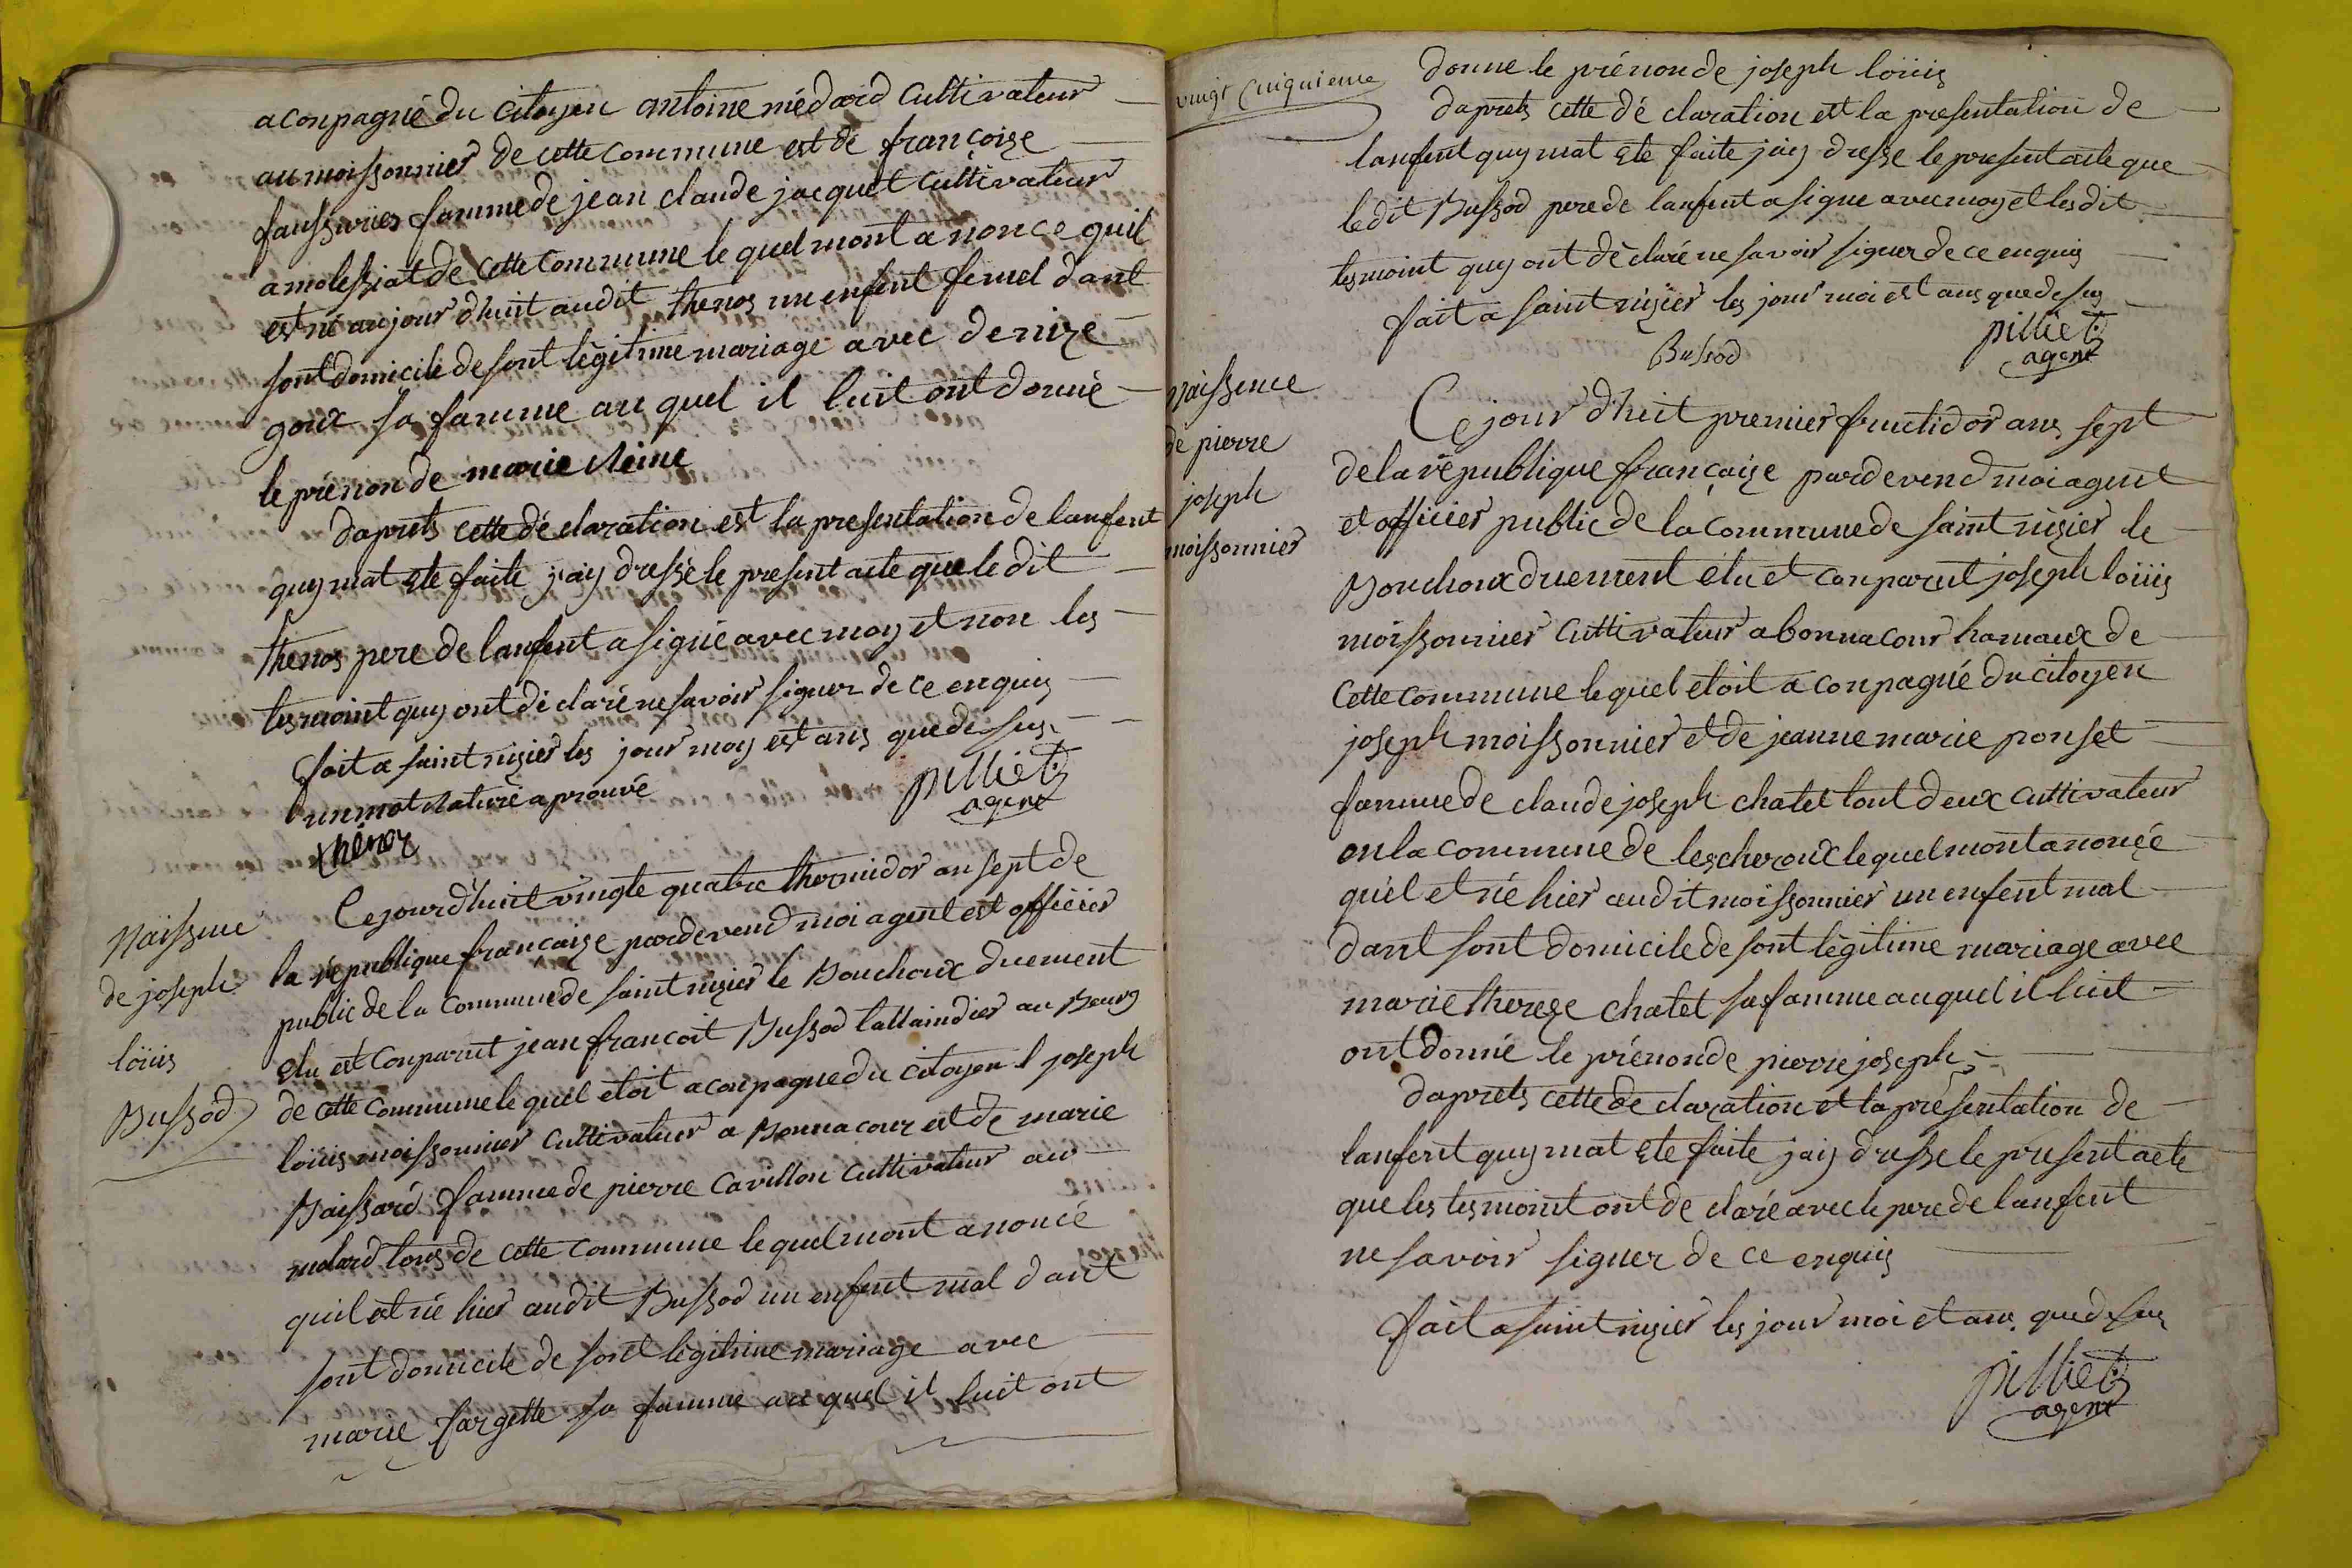 aconpagné du citoyen antoine médard cultivateur
au moissonnier de cette commune est de françoise
famme de jean claude jacquet cultivateur
a molessiat de cette commune le quel mont a nonce quil
est né aujour dhuit audit thenos un enfent femel dant
sont domicile de sont légitime mariage avec denize
goux sa famme au quel il luit ont donné
le prénon de marie Reine
daprets cette dé claration est la presentation de lanfent
quy mat ete faite jaiy dressé le present acte que le dit
thenos pere de lanfent a signé avec moy et non les
tesmoint quy ont dé claré ne savoir signer de ce enquis
fait a saint nizier les jour moy est ans que de sus
un mot raturé aprouvé
pilliet
agent
thénoz
Naissence
de joseph
loüis
Bussod
Ce jourd'huit vingte quatre thermidor an sept de
la république française pardevend moi agent est officier
public de la commune de saint nizier le Bouchoux duement
elu est conparut jean francoit Bussod tattaindier au Bourg
de cette commune le quel etoit aconpagne du citoyen joseph
loüis moissonnier cultivateur a Bonnacour est de marie
Baissard famme de pierre Cavillon cultivateur au
molard tous de cette commune le quel mont anoncé
quil et né hier audit Bussod un enfent mal dant
sont domicile de sont légitime mariage avec
marie fargette sa famme au quel il luit ont
vingt cinquieme
donne le prénon de joseph loüis
daprets cette dé claration est la presentation de
lanfent quy mat ete faite jaiy dresse le present acte que
le dit Bussod pere de lanfent a signe avec moy et les dit
tesmoint quy ont dé claré ne savoir signer de ce enquis
fait a saint nizier les jour moi est ans que de sus
Bussod
pilliet
agent
Naissence
de pierre
joseph
moissonnier
Ce jour d'huit premier fructidor ans sept
de la république française pardevend moi agent
et officier public de la commune de saint nizier le
Bouchoux duement élu et conparut joseph loüis
moissonnier cultivateur a bonnacour hamaux de
cette commune le quel etoit a conpagné du citoyen
joseph moissonnier et de jeanne marie ponset
famme de claude joseph chatel tout deux cultivateur
on la commune de lescheroux le quel mont anoncé
quèl et né hier audit moissonnier un enfent mal
dant sont domicile de sont légitime mariage avec
marie thereze chatel sa famme au quel il luit
ont donné le prénon de pierre joseph
daprets cette de claration et la présentation de
lanfent quy mat ete faite jaiy dresse le present acte
que les tesmoint ont de claré avec le pere de lanfent
ne savoir signer de ce enquis
fait a saint nizier les jour moi et ans que de sus
pilliet
agent